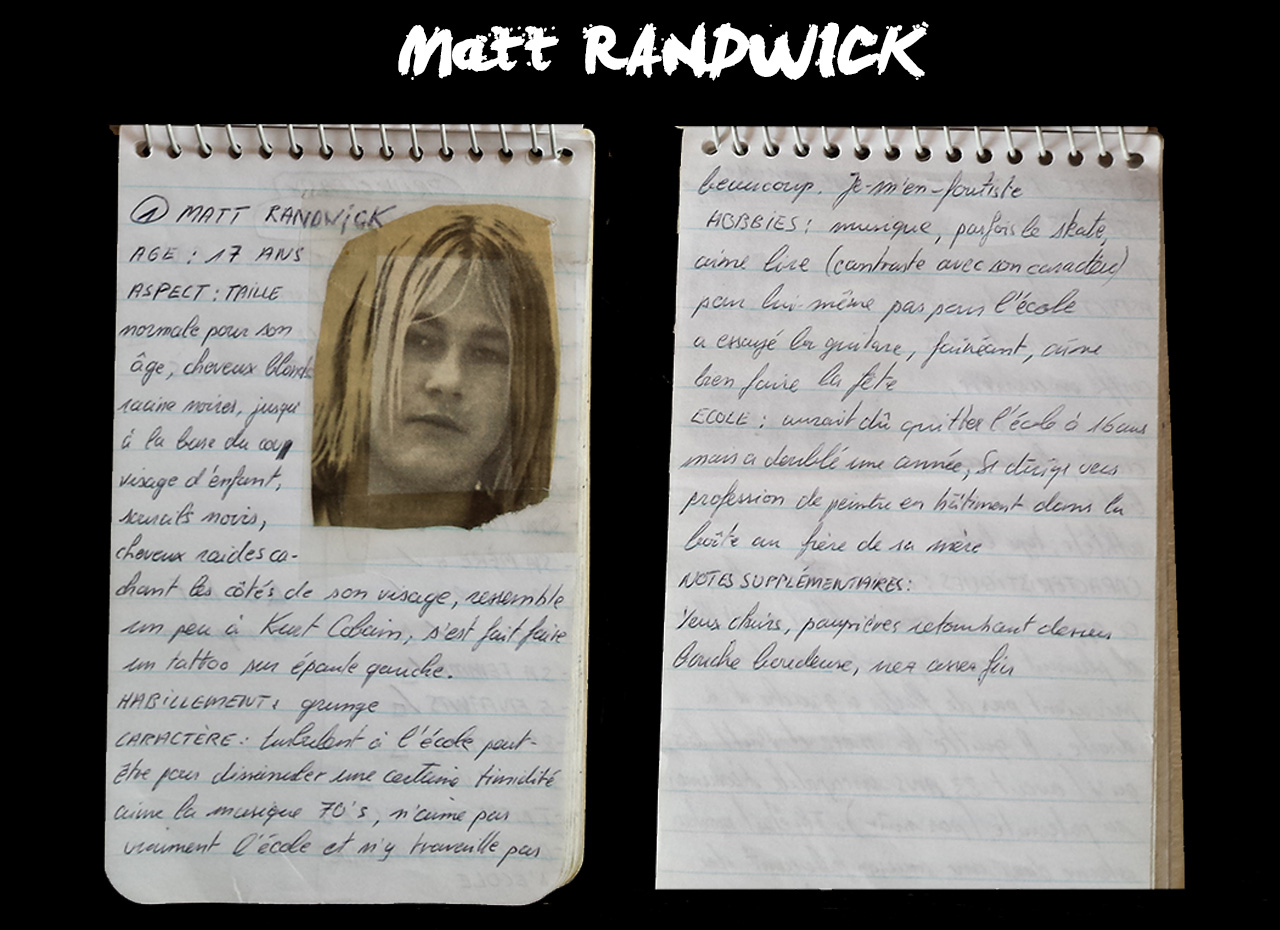 Matt RANDWICK
1 MATT RANDWICK
AGE : 17 ANS
ASPECT : TAILLE
normale pour son
âge, cheveux blonds
racine noires, jusqu'
à la base du cou
visage d'enfant,
sourcils noirs,
cheveux raides ca-
chant les côtés de son visage, ressemble
un peu à Kurt Cobain, s'est fait faire
un tattoo sur épaule gauche.
HABILLEMENT : grunge
CARACTÈRE : turbulent à l'école peut-
être pour dissimuler une certaine timidité
aime la musique 70's, n'aime pas
vraiment l'école et n'y travaille pas
beaucoup. Je-m'en-foutiste
HOBBIES : musique, parfois le skate,
aime lire (contraste avec son caractère)
pour lui-même pas pour l'école
a essayé la guitare, fainéant, aime
bien faire la fête
ECOLE : aurait dû quitter l'école à 16 ans
mais a doublé une année, Se dirige vers
profession de peintre en bâtiment dans la
boîte au frère de sa mère
NOTES SUPPLÉMENTAIRES :
Yeux clairs, paupières retombant dessus
bouche boudeuse, nez assez fin